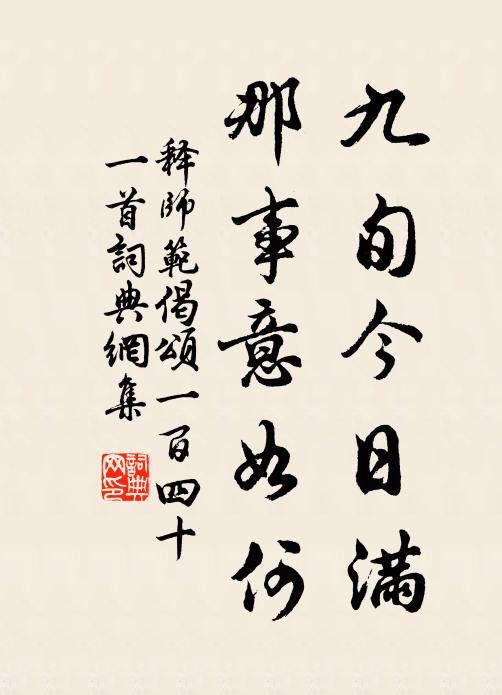 九旬今日满
那事意如何
释師範偈頌一百四十
一首詞典網集
詞典
网印